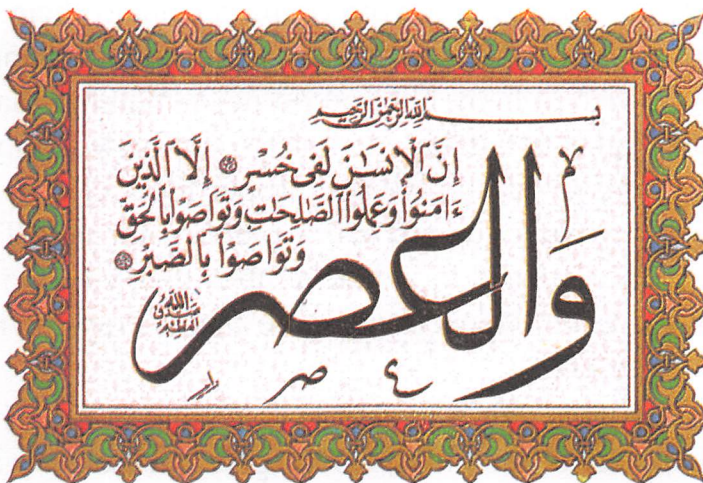 بسم الله الرحمن الرحيم
والعصر
إِنَّ ٱلْإِنسَٰنَ لَفِى خُسْرٍ ۞ إِلَّا ٱلَّذِينَ
ءَامَنُوا۟ وَعَمِلُوا۟ ٱلصَّٰلِحَٰتِ وَتَوَاصَوْا۟ بِٱلْحَقِّ
وَتَوَاصَوْا۟ بِٱلصَّبْرِ ۞
صدق الله
العظيم